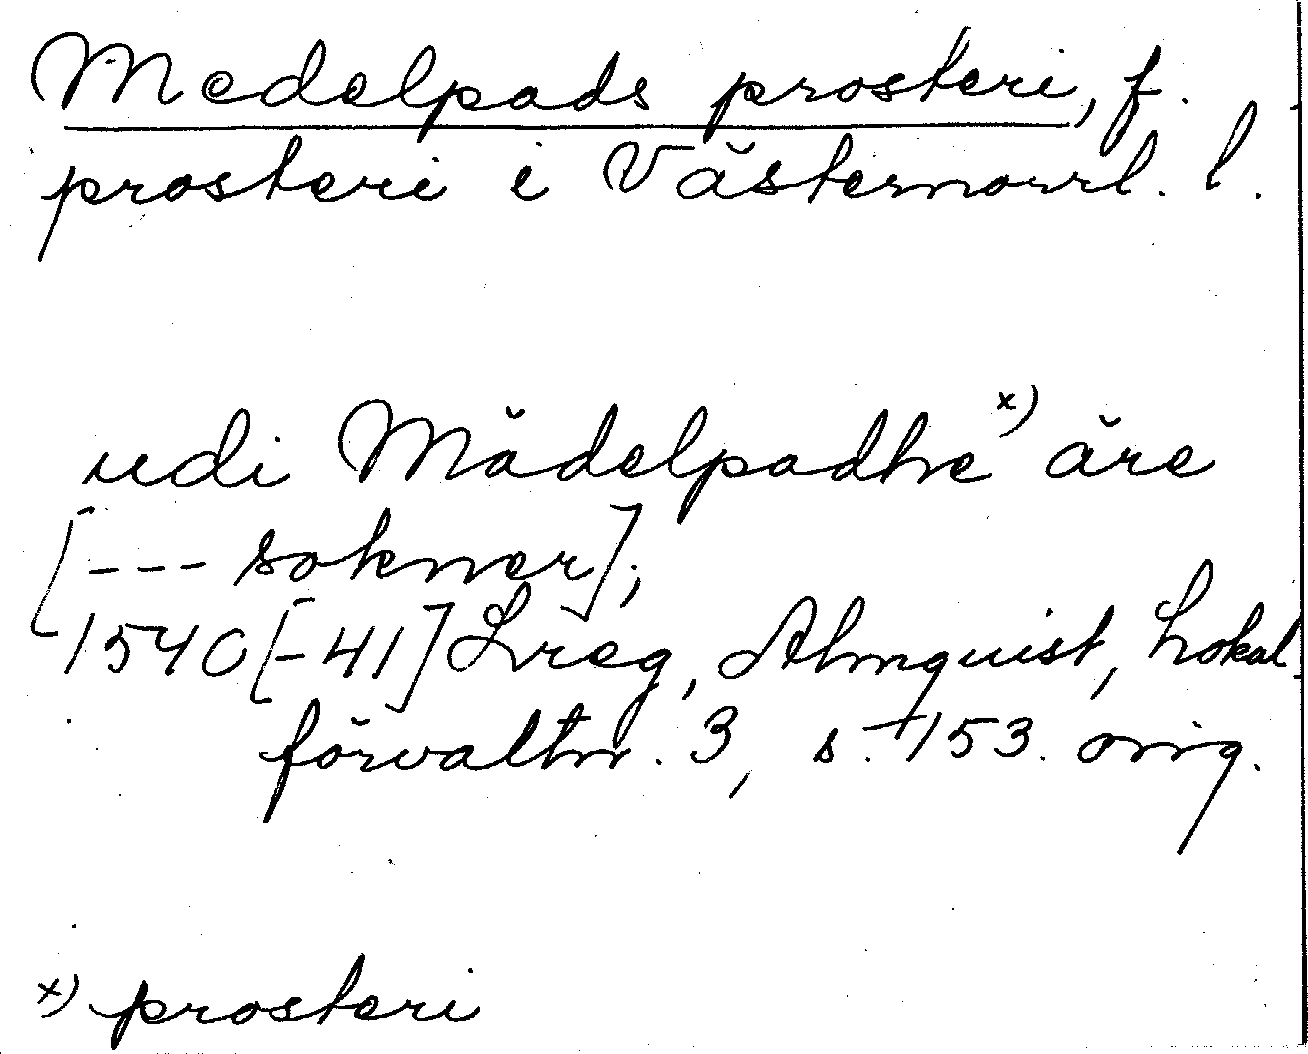 Medelpads prosteri, f.
prosteri i Västernorrl. l.
udi Mädelpadhe x) äre
[--- sokner];
1540[-41] Lreg, Almquist, Lokal
förvaltn. 3, s. 153. orig.
x) prosteri